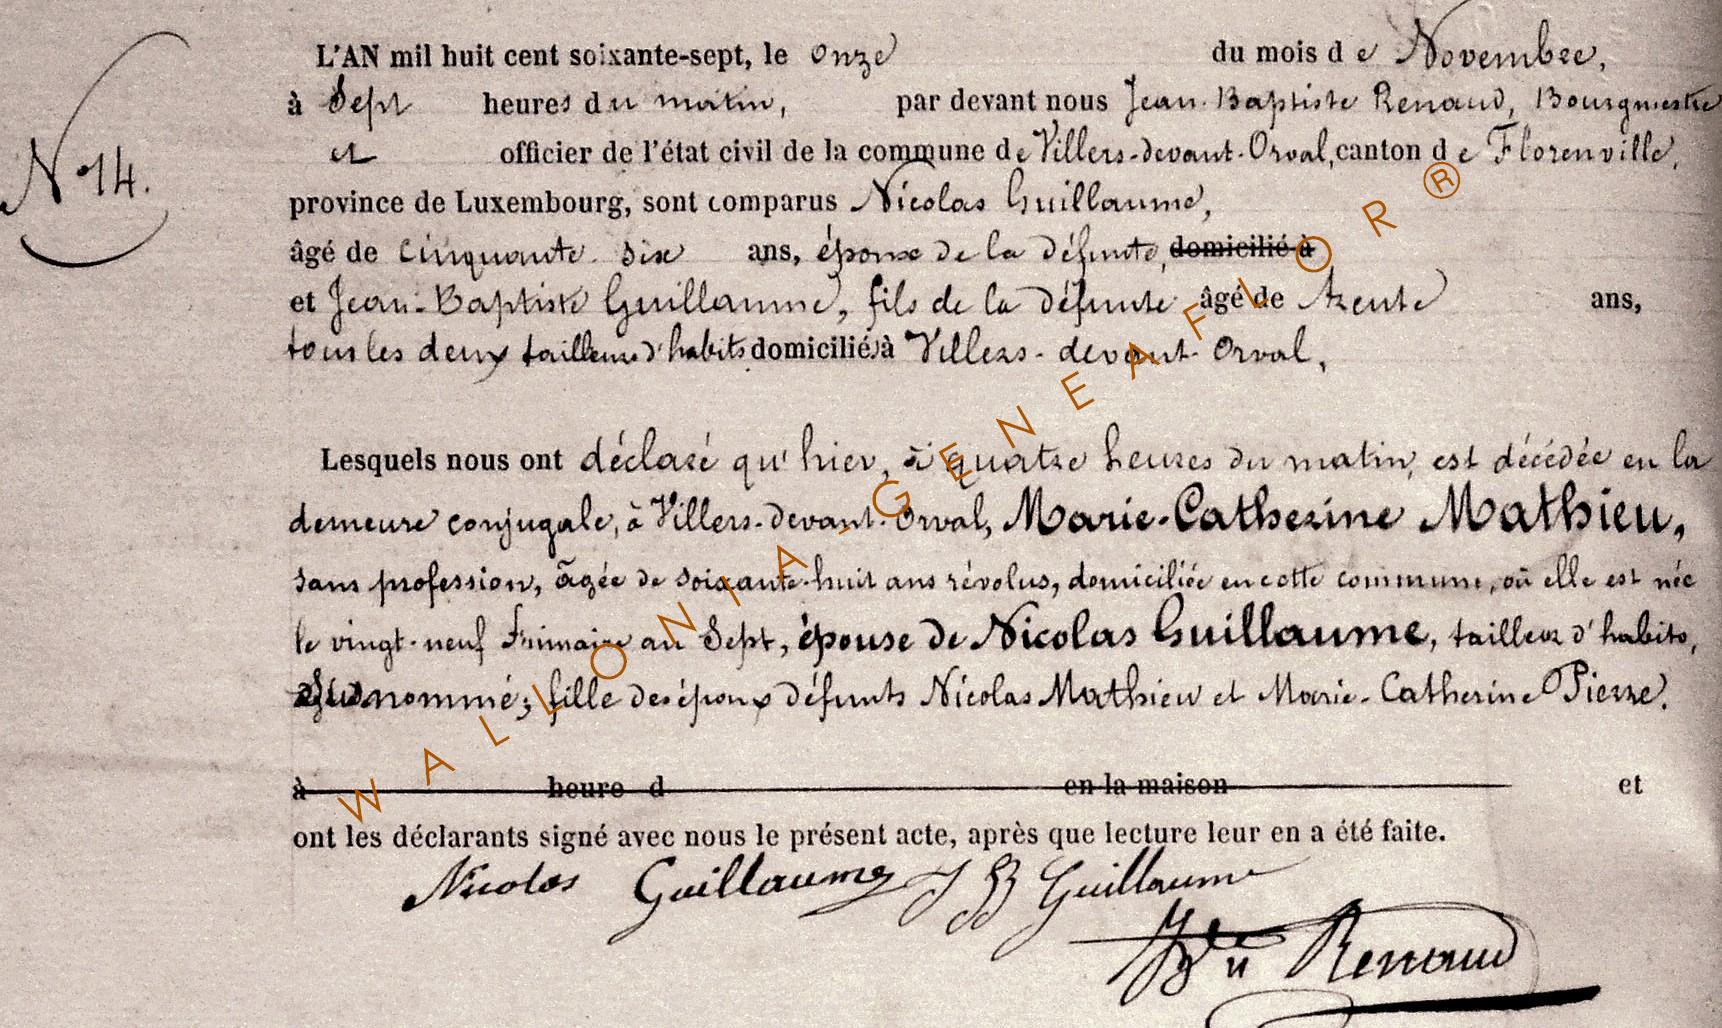 N° 14.
L'AN mil huit cent soixante-sept, le onze du mois de Novembre,
à Sept heures du matin, par devant nous Jean-Baptiste Renaud, Bourgmestre
et officier de l'état civil de la commune de Villers-devant-Orval, canton de Florenville,
province de Luxembourg, sont comparus Nicolas Guillaume,
âgé de cinquante-six ans, époux de la défunte, domicilié à
et Jean-Baptiste Guillaume, fils de la défunte âgé de trente ans,
tous les deux tailleurs d'habits domiciliés à Villers-devant-Orval,
Lesquels nous ont déclaré qu'hier, à quatre heures du matin, est décédée en la
demeure conjugale, à Villers-devant-Orval, Marie-Catherine Mathieu,
sans profession, âgée de soixante-huit ans révolus, domiciliée en cette commune, où elle est née
le vingt-neuf Frimaire an Sept, épouse de Nicolas Guillaume, tailleur d'habits,
susnommé; fille des époux défunts Nicolas Mathieu et Marie-Catherine Pierre.
à heure d en la maison et
ont les déclarants signé avec nous le présent acte, après que lecture leur en a été faite.
Nicolas Guillaume J B Guillaume
Renaud
WALLONIA-GENEAFLOR®